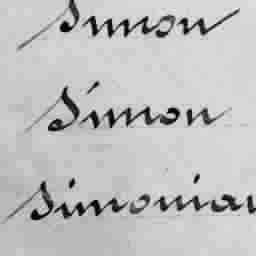 Simon
Simon
Simonian